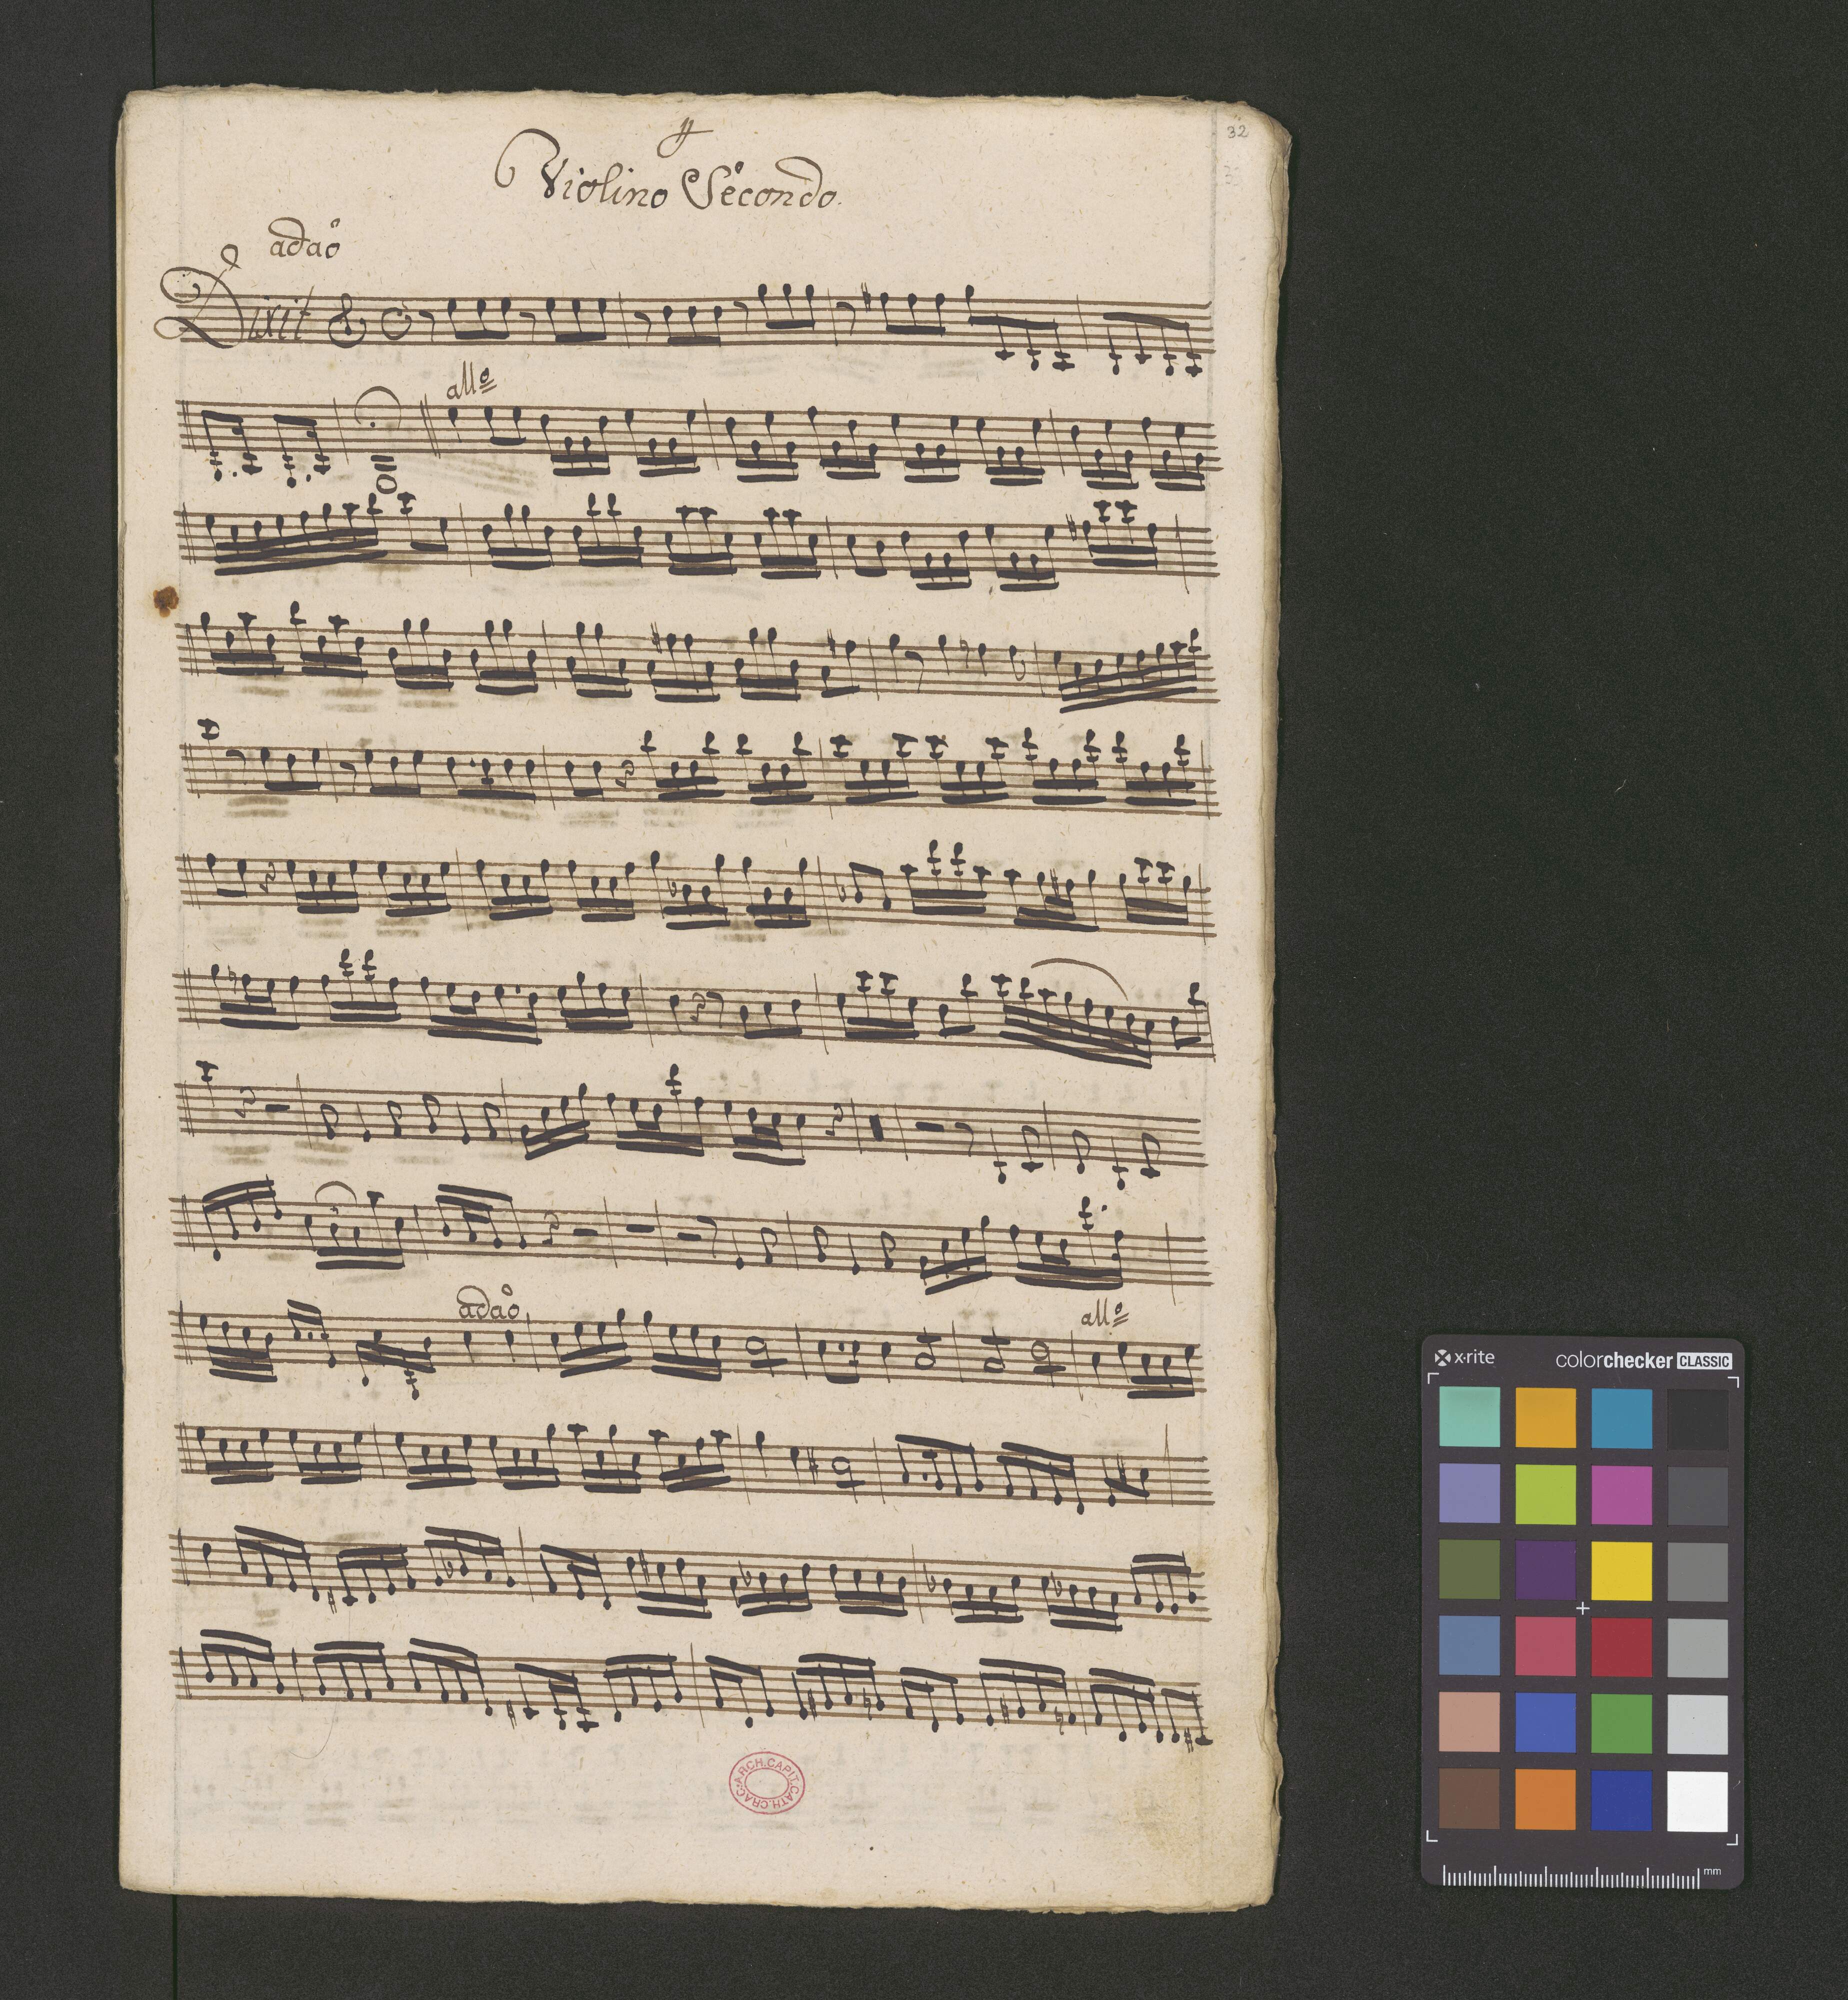 32
Violino Secondo.
adao
Dixit
allo
adao
allo
ARCH.CAPIT.CATH.CRAC.
x-rite
colorchecker CLASSIC
mm